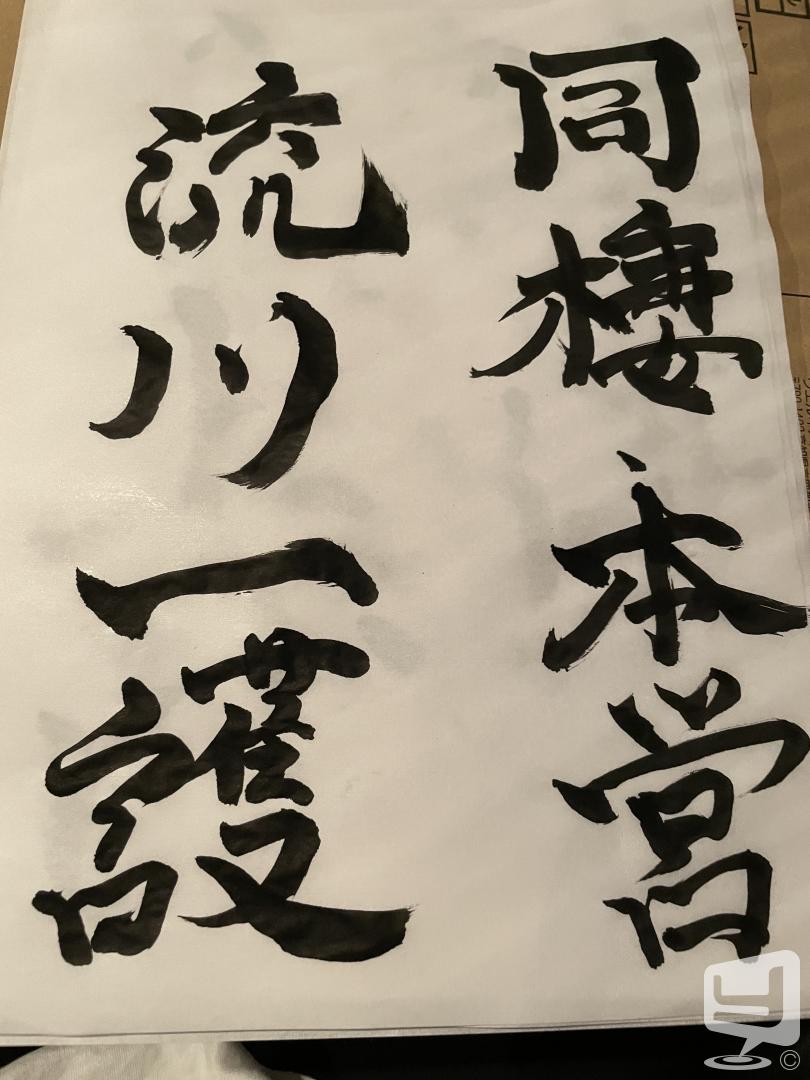 同棲本営
流川一護